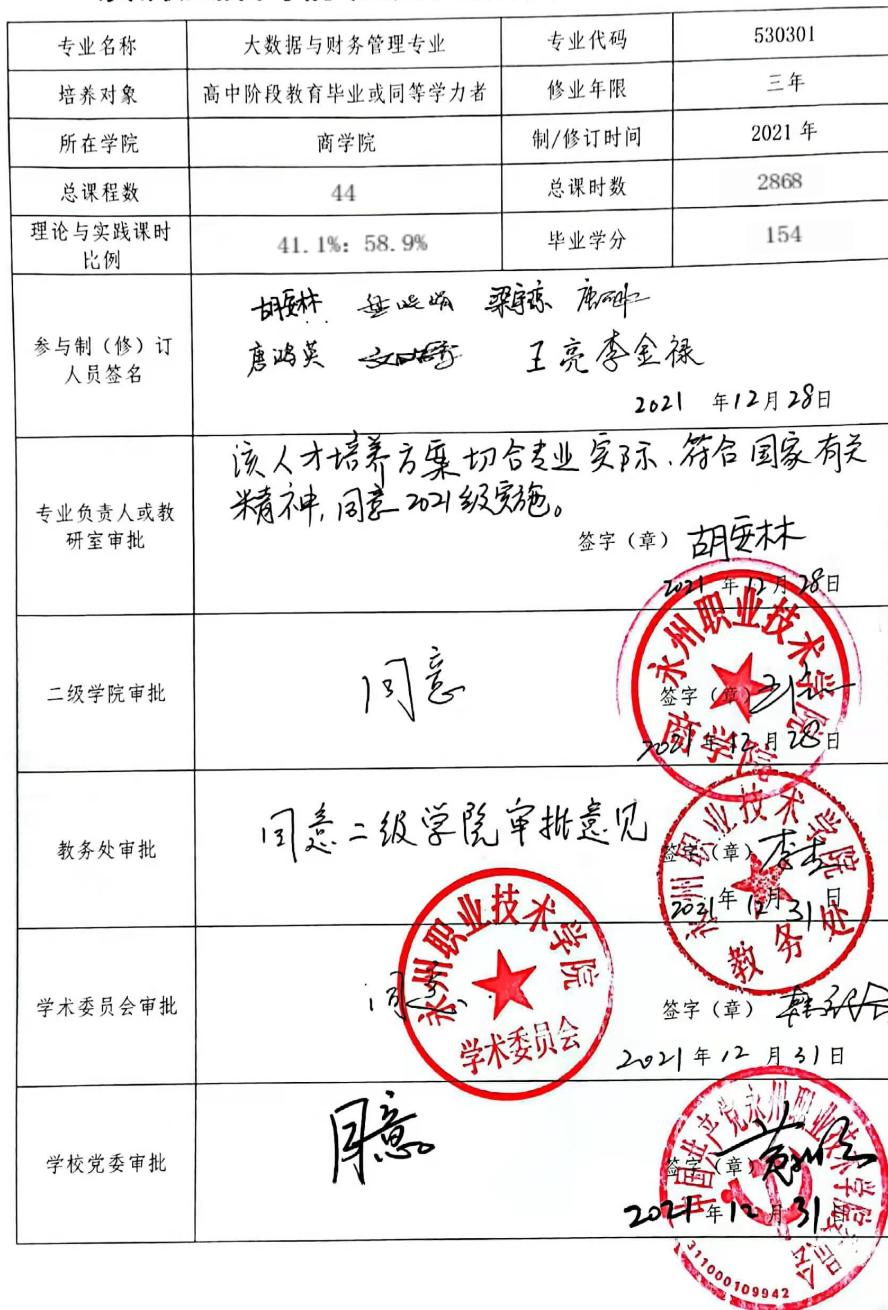 专业名称 大数据与财务管理专业 专业代码 530301
培养对象 高中阶段教育毕业或同等学力者 修业年限 三年
所在学院 商学院 制/修订时间 2021年
总课程数 44 总课时数 2868
理论与实践课时
比例 41.1%: 58.9% 毕业学分 154
参与制（修）订
人员签名
唐鸿英 王亮 李金禄
2021 年12月28日
专业负责人或教
研室审批
该人才培养方案切合专业实际、符合国家有关
精神, 同意2021级实施。
签字（章）
2021 年12月28日
二级学院审批
同意
签字（章）
2021年12月28日
永州职业技术学院
商学院
教务处审批
同意二级学院审批意见
签字（章）
2021年12月31日
永州职业技术学院
教务处
学术委员会审批
同意
签字（章）
2021年12月31日
永州职业技术学院
学术委员会
学校党委审批
同意
签字（章）
2021年12月31日
中国共产党永州职业技术学院委员会
311000109942